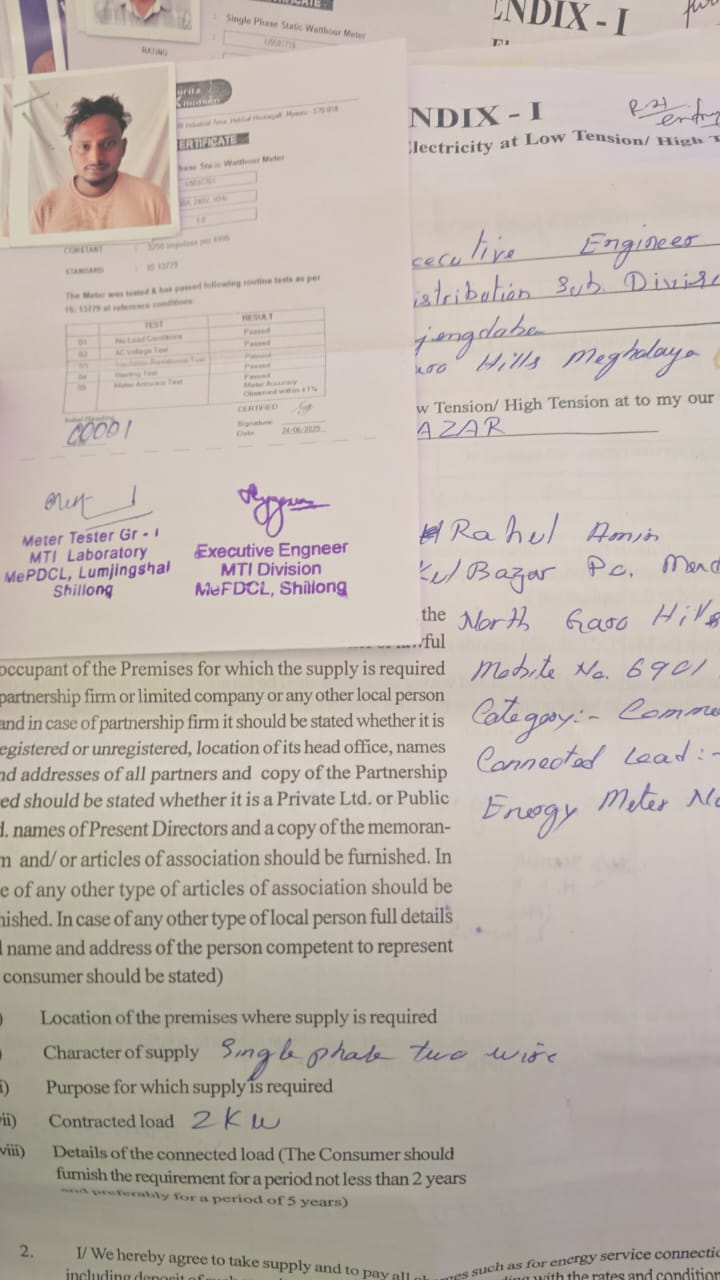 Single Phase Static Watthour Meter
RATING
NDIX - I
CERTIFICATE
Phase Static Watthour Meter
CONSTANT : 3200 impulses per kWh
STANDARD : IS 13779
The Meter was tested & has passed following routine tests as per
IS: 13779 at reference conditions:
TEST RESULT
01 No Load Conditions Passed
02 AC Voltage Test Passed
03 Passed
04 Starting Test Passed
05 Meter Accuracy Test Meter Accuracy
Observed within ±1%
CERTIFIED
Signature
Date 24/06/2025
00001
Meter Tester Gr - I
MTI Laboratory
MePDCL, Lumjingshai
Shillong
Executive Engneer
MTI Division
MePDCL, Shillong
NDIX - I
entry
Electricity at Low Tension/ High T
ecutive Engineer
istribution Sub. Divisi
Hills Meghalaya
w Tension/ High Tension at to my our
AZAR
Rahul Amin
Bazar Pc. Mend
the North Garo Hills
ful
occupant of the Premises for which the supply is required Mobile No. 6901
partnership firm or limited company or any other local person
and in case of partnership firm it should be stated whether it is Category:- Comme
egistered or unregistered, location of its head office, names
nd addresses of all partners and copy of the Partnership Connected Load:-
ed should be stated whether it is a Private Ltd. or Public
d. names of Present Directors and a copy of the memoran- Energy Meter No
m and/ or articles of association should be furnished. In
e of any other type of articles of association should be
nished. In case of any other type of local person full details
l name and address of the person competent to represent
consumer should be stated)
Location of the premises where supply is required
Character of supply Single phase two wire
i) Purpose for which supply is required
ii) Contracted load 2 KW
viii) Details of the connected load (The Consumer should
furnish the requirement for a period not less than 2 years
and preferably for a period of 5 years)
2. I/ We hereby agree to take supply and to pay all charges such as for energy service connectio
including deposit of with the rates and condition